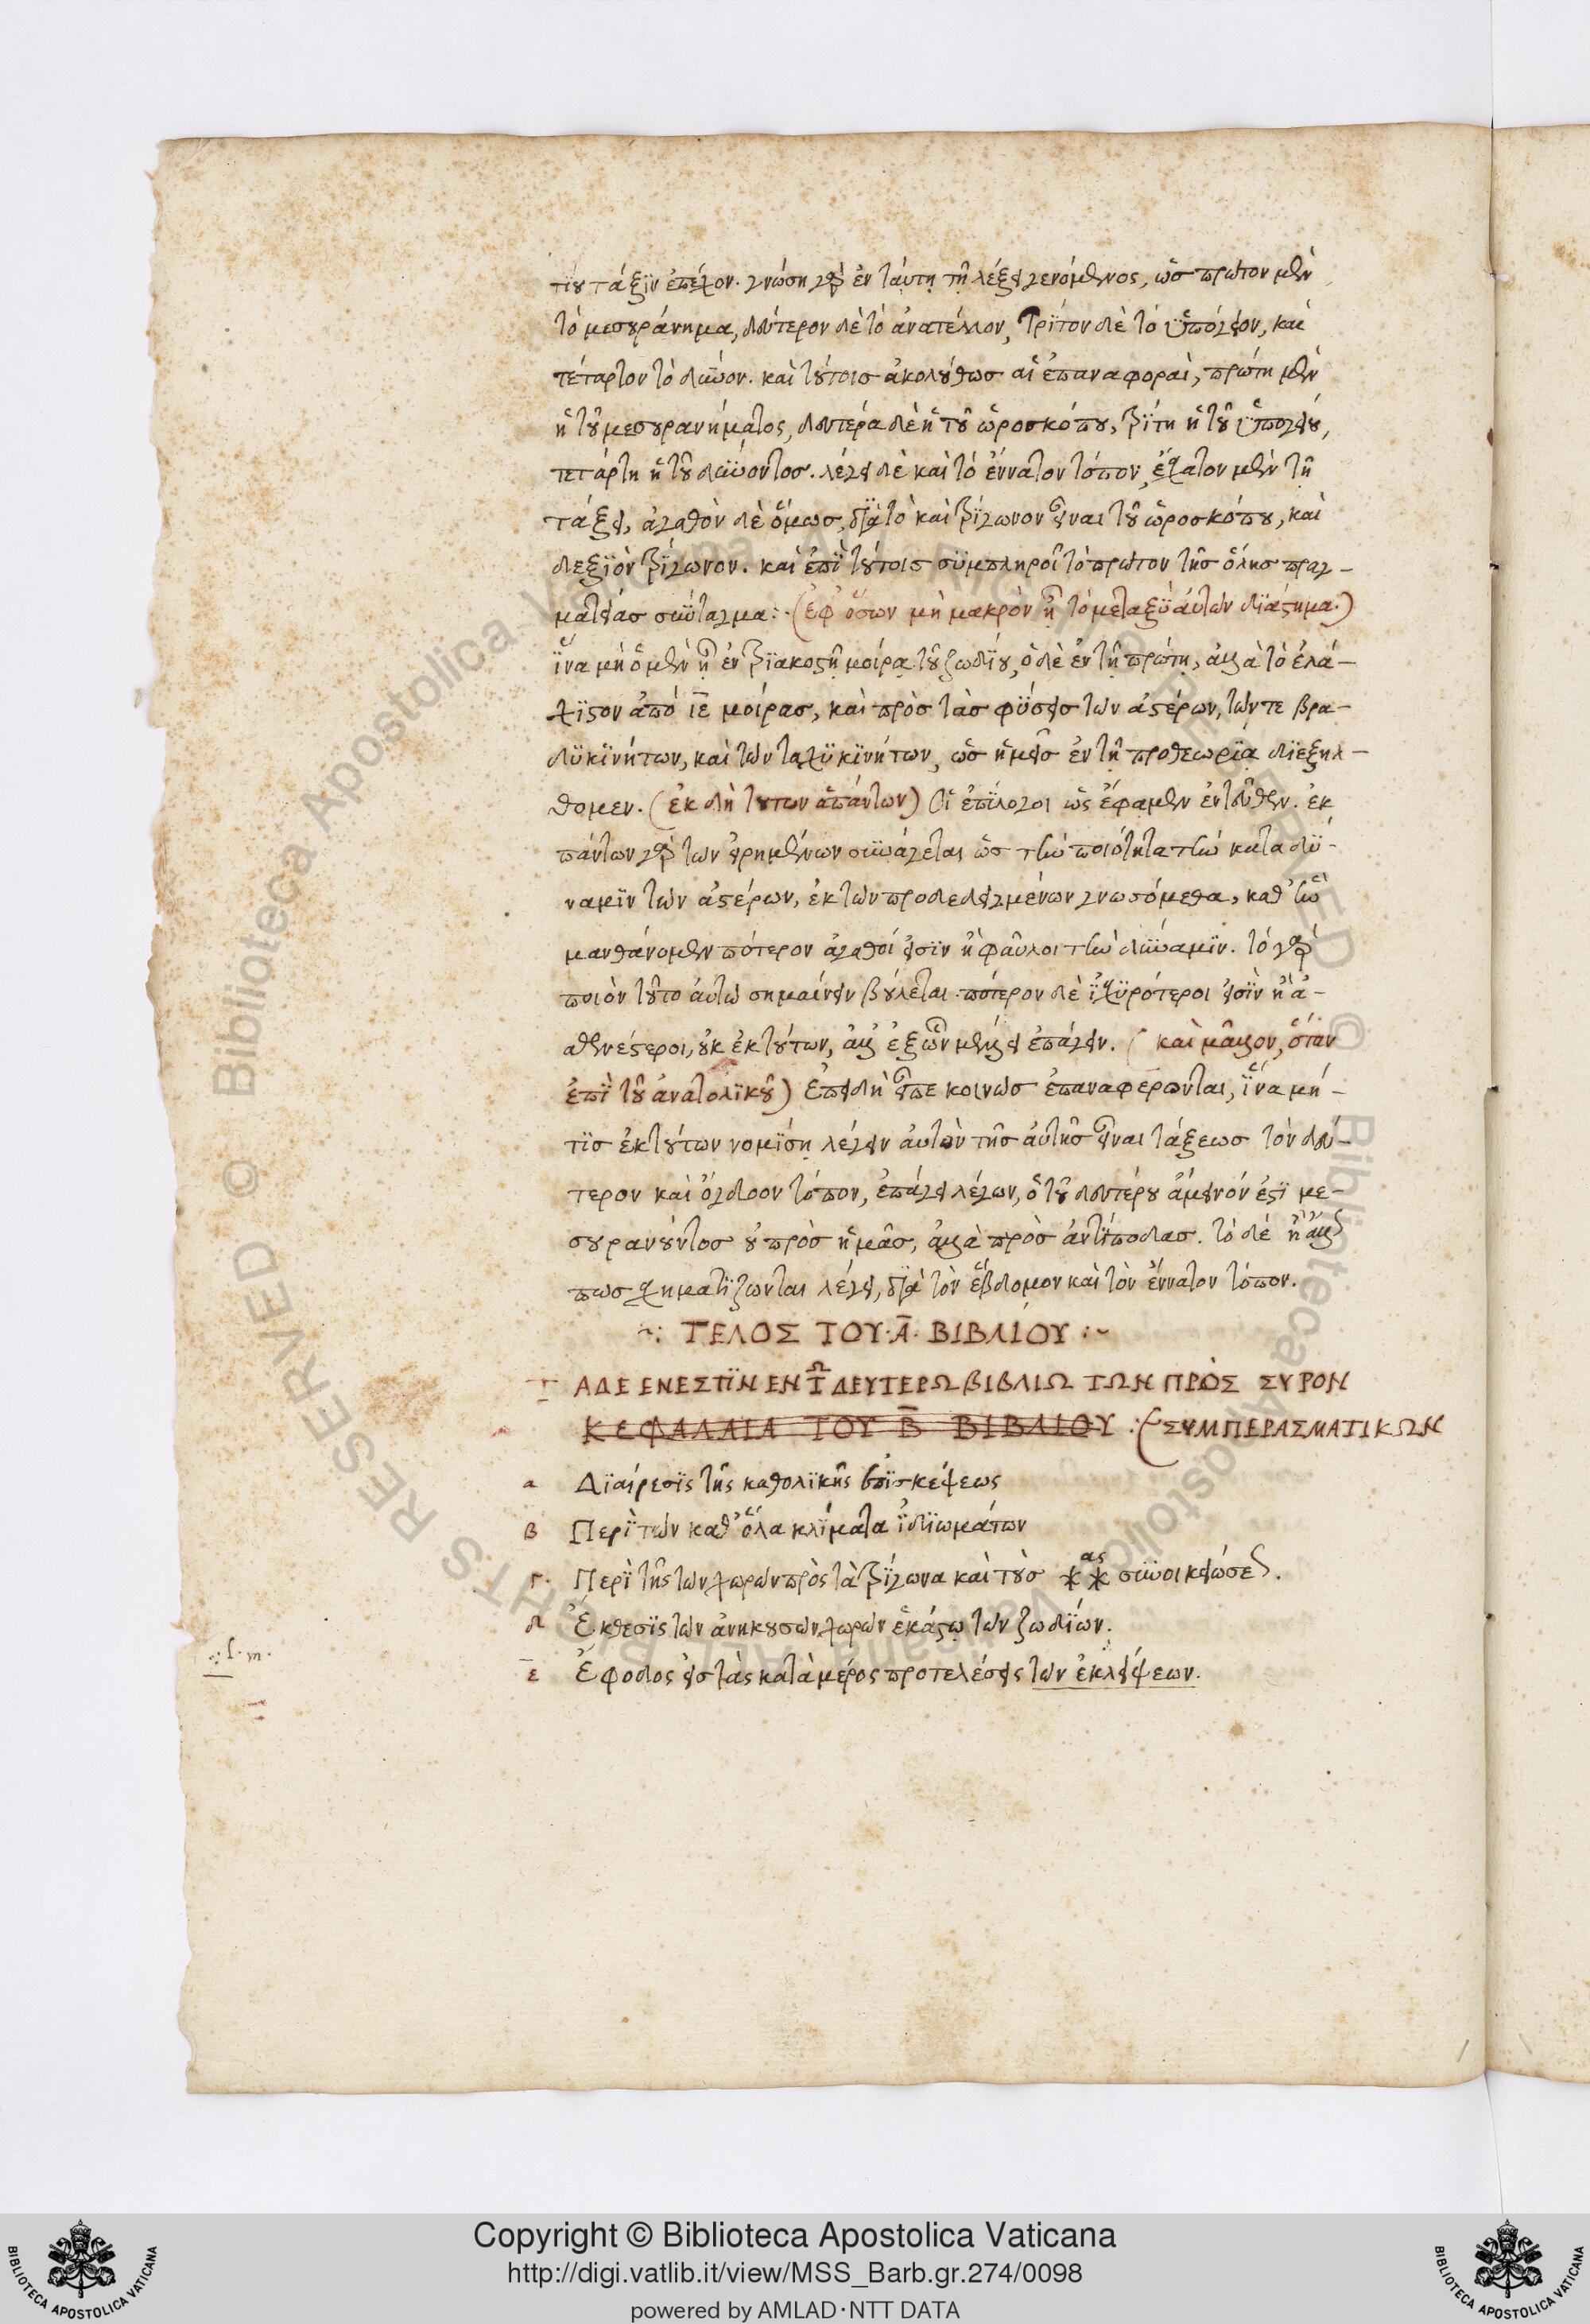 τίυ τάξϊν ἐπέχον. γνώση γὰρ ἐν ταύτη τῆ λέξει γενόμενος, ὡσ πρῶτον μὲν
τὸ μεσουράνημα, δεύτερον δὲ τὸ ἀνατέλλον, τρίτον δὲ τὸ ὑπόγειον, καὶ
τέταρτον τὸ δῦνον. καὶ τούτοισ ἀκολούθωσ αἱ ἐπαναφοραὶ, πρώτη μὲν
ἡ τοῦ μεσουρανήματος, δευτέρα δὲ ἡ τοῦ ὡροσκόπου, τρίτη ἡ τοῦ ὑπογείου,
τετάρτη ἡ τοῦ δύνοντοσ. λέγει δὲ καὶ τὸ ἔννατον τόπον, ἔσχατον μὲν τῆ
τάξει, ἀγαθὸν δὲ ὅμωσ, διὰ τὸ καὶ τρίγωνον εἶναι τοῦ ὡροσκόπου, καὶ
δεξιὸν τρίγωνον. καὶ ἐπὶ τούτοισ συμπληροῖ τὸ πρῶτον τῆσ ὅλησ πραγ-
ματείασ σύνταγμα:· (ἐφ' ὅσων μὴ μακρὸν ἦ τὸ μεταξὺ αὐτῶν διάστημα.)
ἵνα μὴ ὁ μὲν ἦ ἐν τριακοστῆ μοίρα τοῦ ζωδίου, ὁ δὲ ἐν τῆ πρώτη, ἀλλὰ τὸ ἐλά-
χιστον ἀπὸ ιε μοίρασ, καὶ πρὸσ τὰσ φύσεισ τῶν ἀστέρων, τῶν τε βρα-
δυκινήτων, καὶ τῶν ταχυκινήτων, ὡσ ἡμεῖσ ἐν τῆ προθεωρία διεξήλ-
θομεν. (ἐκ δὴ τούτων ἁπάντων) οἱ ἐπίλογοι ὡς ἔφαμεν ἐντεῦθεν. ἐκ
πάντων γὰρ τῶν εἰρημένων συνάγεται ὡσ τὴν ποιότητα τὴν κατὰ δύ-
ναμιν τῶν ἀστέρων, ἐκ τῶν προδεδειγμένων γνωσόμεθα, καθ' ἣν
μανθάνομεν πότερον ἀγαθοί εἰσιν ἢ φαῦλοι τὴν δύναμιν. τὸ γὰρ
ποιὸν τοῦτο αὐτῶ σημαίνειν βούλεται. πότερον δὲ ἰσχυρότεροι εἰσὶν ἢ ἀ-
σθενέστεροι, οὐκ ἐκ τούτων, ἀλλ' ἐξ ὧν μέλλει ἐπάγειν. ( καὶ μᾶλλον, ὅταν
ἐπὶ τοῦ ἀνατολικοῦ) ἐπειδὴ εἶπε κοινῶσ ἐπαναφέρωνται, ἵνα μή-
τισ ἐκ τούτων νομίση λέγειν αὐτὸν τῆσ αὐτῆσ εἶναι τάξεωσ τὸν δεύ-
τερον καὶ ὄγδοον τόπον, ἐπάγει λέγων, ὁ τοῦ δευτέρου ἄμεινόν ἐστι με-
σουρανοῦντοσ οὐ πρὸσ ἡμᾶσ, ἀλλὰ πρὸσ ἀντίποδασ. τὸ δὲ ἢ ἄλλωσ
πωσ σχηματίζωνται λέγει, διὰ τὸν ἕβδομον καὶ τὸν ἔννατον τόπον.
~: ΤΕΛΟΣ ΤΟΥ·Α̅· ΒΙΒΛΙΟΥ :~
Τ ΑΔΕ ΕΝΕΣΤΙΝ ΕΝ ΤΩ ΔΕΥΤΕΡΩ ΒΙΒΛΙΩ ΤΩΝ ΠΡΟΣ ΣΥΡΟΝ
ΚΕΦΑΛΑΙΑ ΤΟΥ Β̅ ΒΙΒΛΙΟΥ :· ΣΥΜΠΕΡΑΣΜΑΤΙΚΩΝ
α Διαίρεσις τῆς καθολικῆς ἐπισκέψεως
β Περὶ τῶν καθ' ὅλα κλίματα ἰδιωμάτων
γ· Περὶ τῆς τῶν χωρῶν πρὸς τὰ τρίγωνα καὶ τοὺσ ⁎⁎ας συνοικειώσεως.
δ Ἔκθεσις τῶν ἀνηκουσῶν χωρῶν ἑκάστω τῶν ζωδίων.
ε Ἔφοδος εἰσ τὰς κατὰ μέρος προτελέσεις τῶν ἐκλείψεων.
Copyright © Biblioteca Apostolica Vaticana
http://digi.vatlib.it/view/MSS_Barb.gr.274/0098
powered by AMLAD·NTT DATA